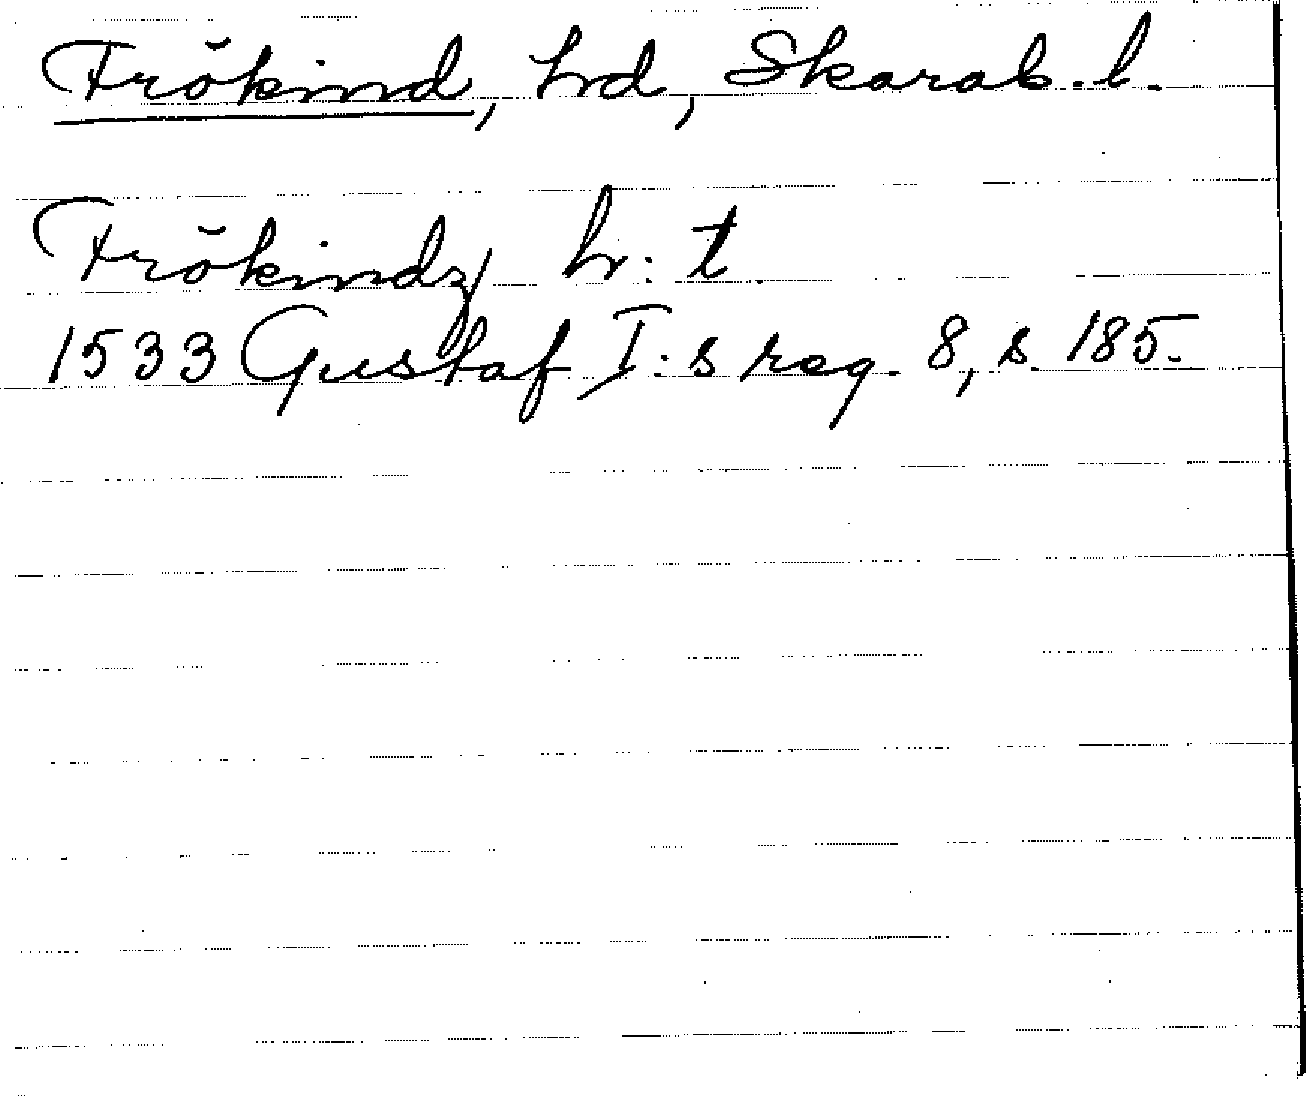 Frökind, hd, Skarab. l.
Frökindz h: t
1533 Gustaf I:s reg. 8, s. 185.